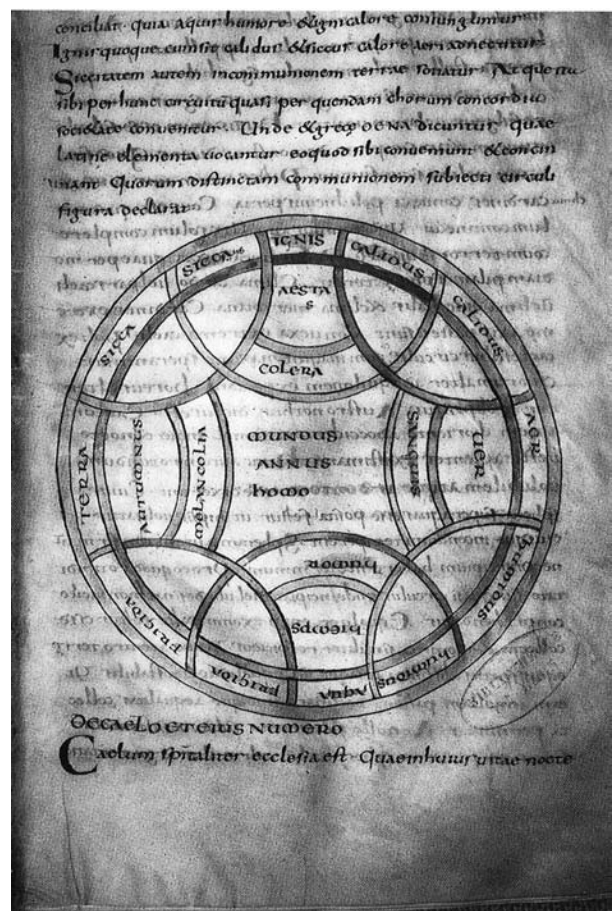 conciliat. quia aqua humore & igni calore coniungitur
Ignis quoque cum sit calidus & siccus calore aeri adnectitur
Siccitatem autem in communionem terrae sociatur. Atque ita
sibi per hunc circuitū quasi per quendam chorum concordiū
societate conveniunt. Unde & grece dicuntur quae
latine elementa vocantur eo quod sibi conveniunt & concin
nant Quorum distinctam communionem subiecti circuli
figura declarat
SICCA IGNIS CALIDUS
SICCA AESTAS CALIDUS
COLERA
TERRA AUTUMNUS MELANCOLIA
MUNDUS
ANNUS
HOMO
SANGUIS VER AER
HUMOR
HIEMPS
FRIGIDA FRIGIDA AQUA HUMIDUS HUMIDUS
DE CAELO ET EIUS NUMERO
Caelum spitaliter ecclesia est Quae in huius vitae nocte